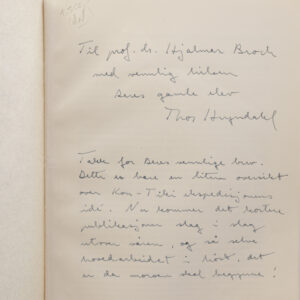 Til prof. dr. Hjalmar Broch
med vennlig hilsen
Deres gamle elev
Thor Heyerdahl
Takk for Deres vennlige brev.
Dette er bare en liten oversikt
over Kon-Tiki ekspedisjonens
idé. Nu kommer det kortere
publikasjoner slag i slag
utover våren, og så selve
hovedarbeidet i höst, det
er da moroen skal begynne!